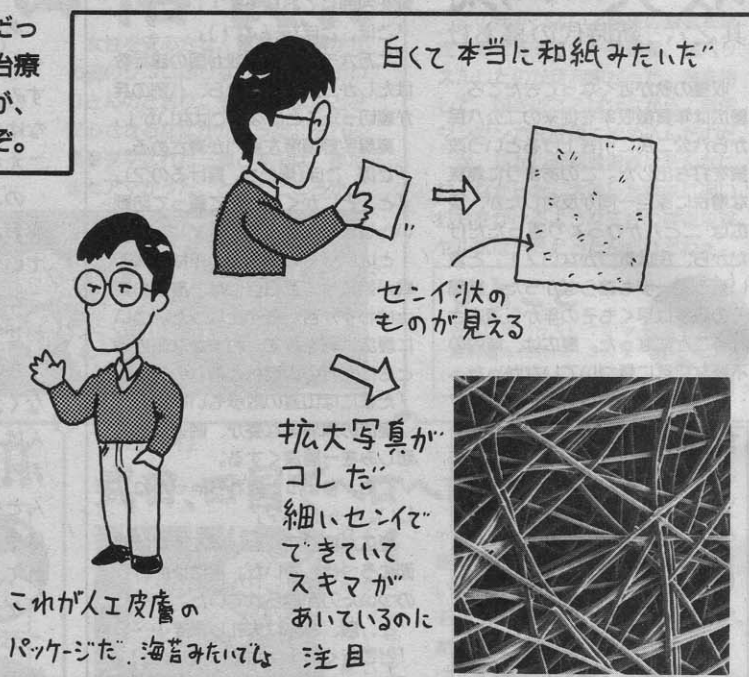 だっ
治療
が、
ぞ。
白くて本当に和紙みたいだ
センイ状の
ものが見える
拡大写真が
コレだ
細いセンイで
できていて
スキマが
あいているのに
注目
これが人工皮膚の
パッケージだ.海苔みたいでしょ